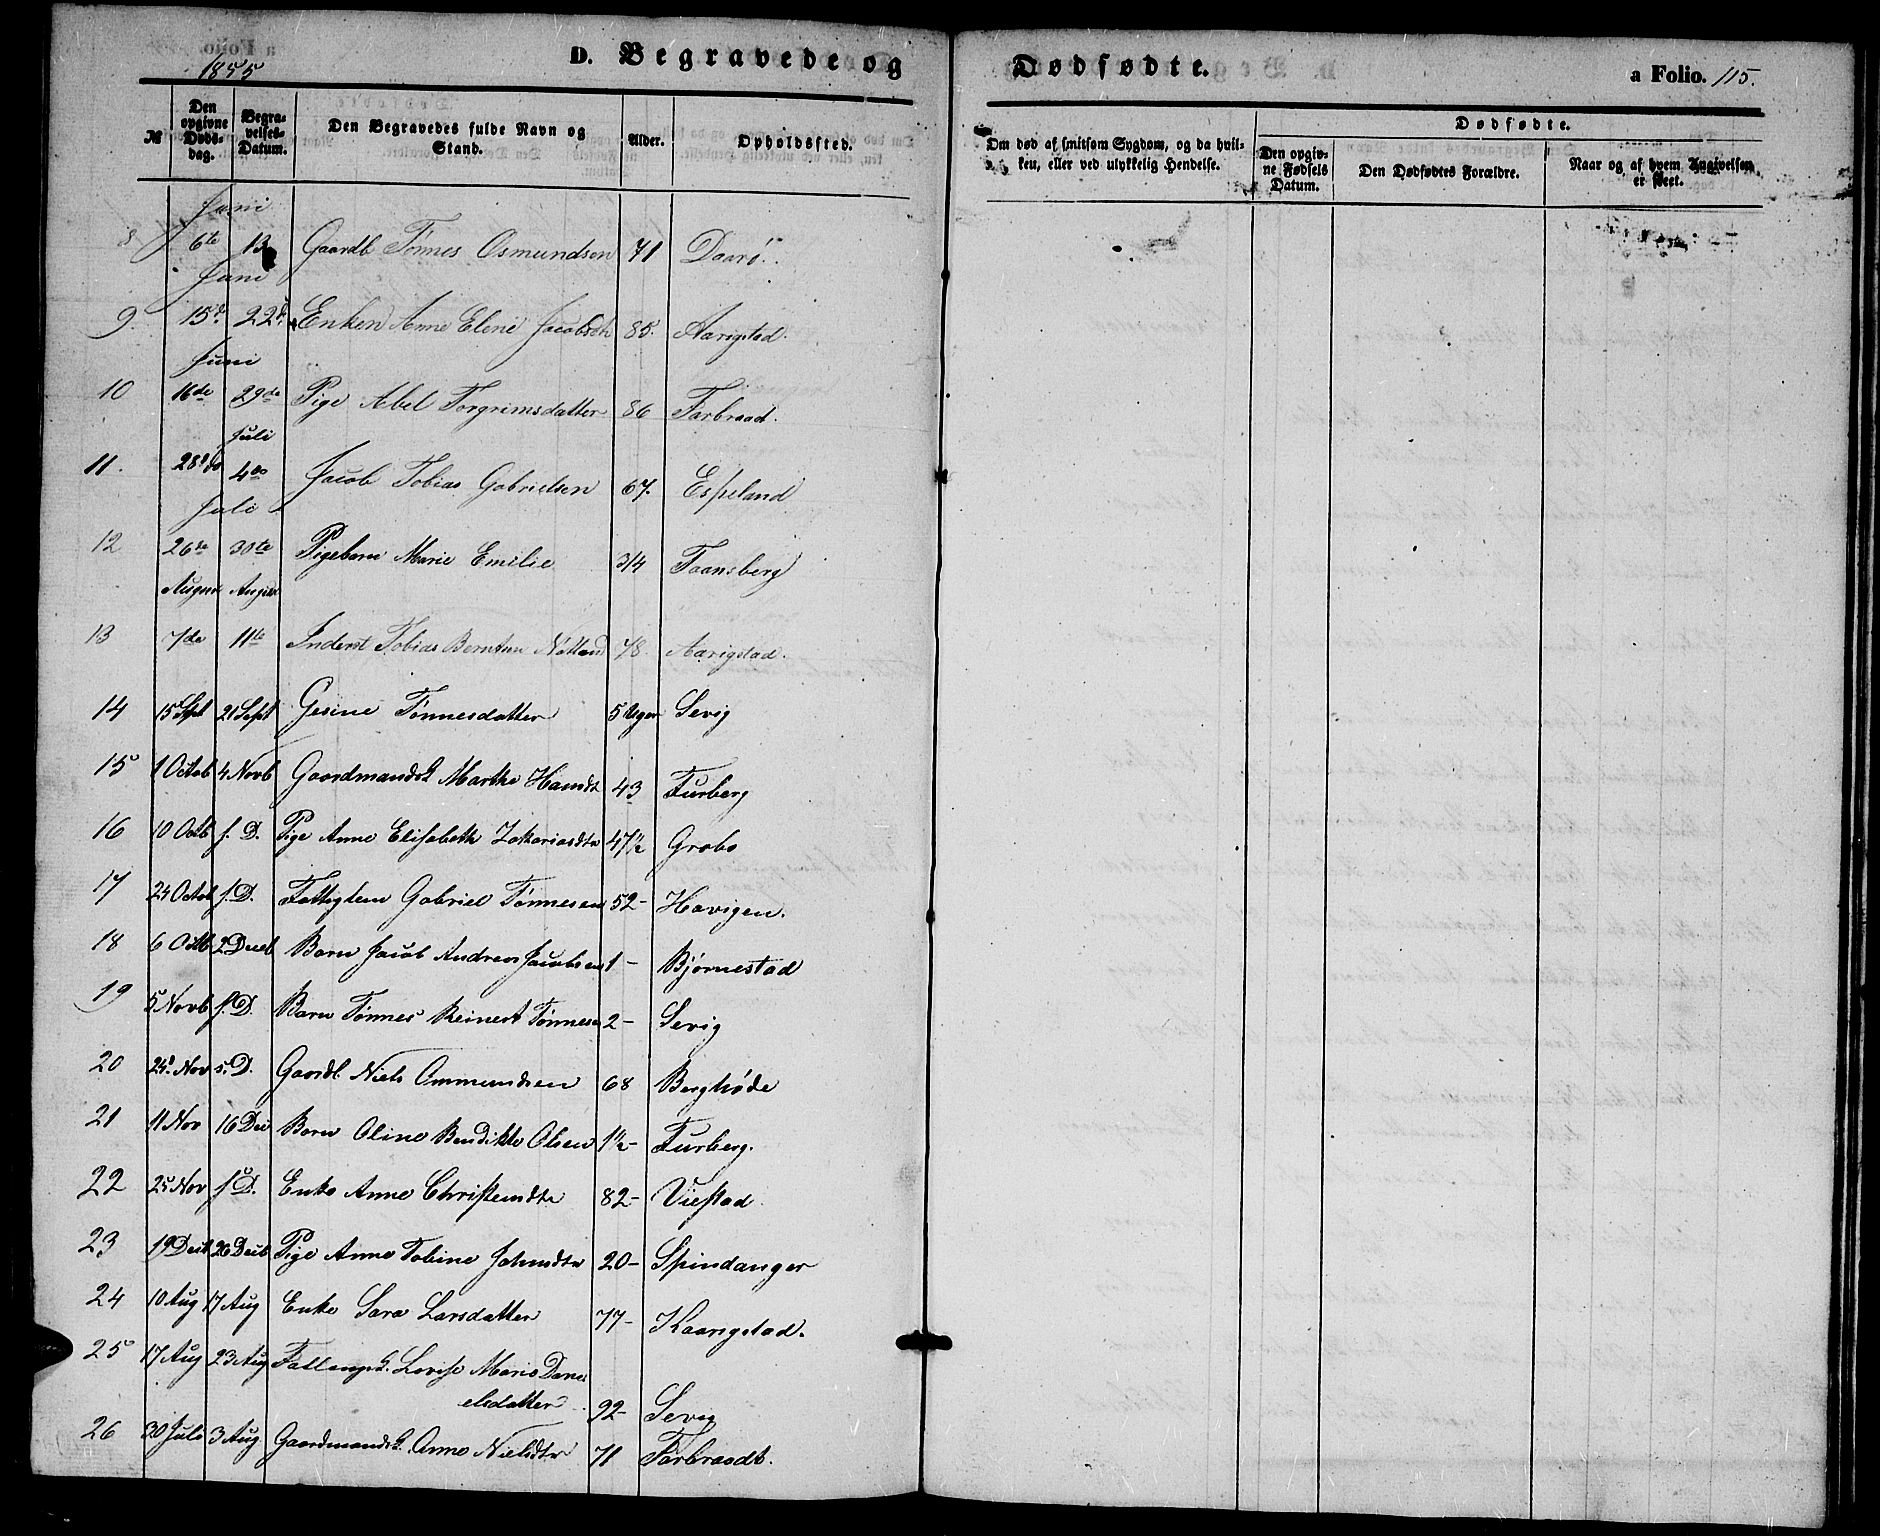 1855
D. Begravede og Dødfødte.
a Folio. 115.
№
Den opgivne Døds-dag.
Begra-velses-Datum.
Den Begravedes fulde Navn og Stand.
Alder.
Opholdssted.
Om død af smitsom Sygdom, og da hvil-ken, eller ved ulykkelig Hendelse.
Dødfødte.
Den opgiv-ne Fødsels Datum.
Den Dødfødtes Forældre.
Naar og af hvem Angivelsen er skeet.
Juni
8 6te 13 Gaardb Tønnes Osmundsen 71 Daarø.
Juni
9. 15d. 22d. Enken Anne Elene Jacobsdtr 85. Aarigstad.
Juni
10 16de 29de Pige Abel Torgrimsdatter 86 Farbraad.
Juli
11. 28de 4de Jacob Tobias Gabrielsen 67. Espeland
Juli
12 26de 30te Pigebarn Marie Emilie 3/4 Faansberg
August August
13 7de 11te Inderst Tobias Berntsen 48. Aarigstad.
14 15 Sept 21 Sept Gesine Tønnesdatter 5 Uger Sevig
15 1 Octob 4 Novb Gaardmandsk. Marthe Hansdtr 43 Furberg
16 10 Octb s. D. Pige Anne Elisabeth Zakariasdtr 47 1/2 Grobo
17 24 Octob s. D. Fattiglem Gabriel Tønnesen 52- Havigen.
18 6 Octb 2 Decb Barn Jacob Andreas Jacobsen 1- Bjørnestad
19 5 Novb s. D. Barn Tønnes Reinert Tønnesen 2- Sevig
20 24 Nov s. D. Gaardb. Niels Ommundsen 68 Berghøde
21 11 Nov 16 Dec Barn Oline Bendikte Olsen 1 1/2- Furberg.
22 25 Nov s. D. Enke Anne Christensdtr 82- Viestad
23 19 Decb 26 Decb Pige Anne Tobine Johnsdtr 20- Spindanger
24 10 Aug 17 Aug Enke Sara Larsdatter 77- Kaangstad.
25 17 Aug 23 Aug Lovise Marie Dani
elsdatter 92- Sevig
26 30 Juli 3 Aug Gaardmandsk. Anne Nielsdtr 71 Farbraadt.